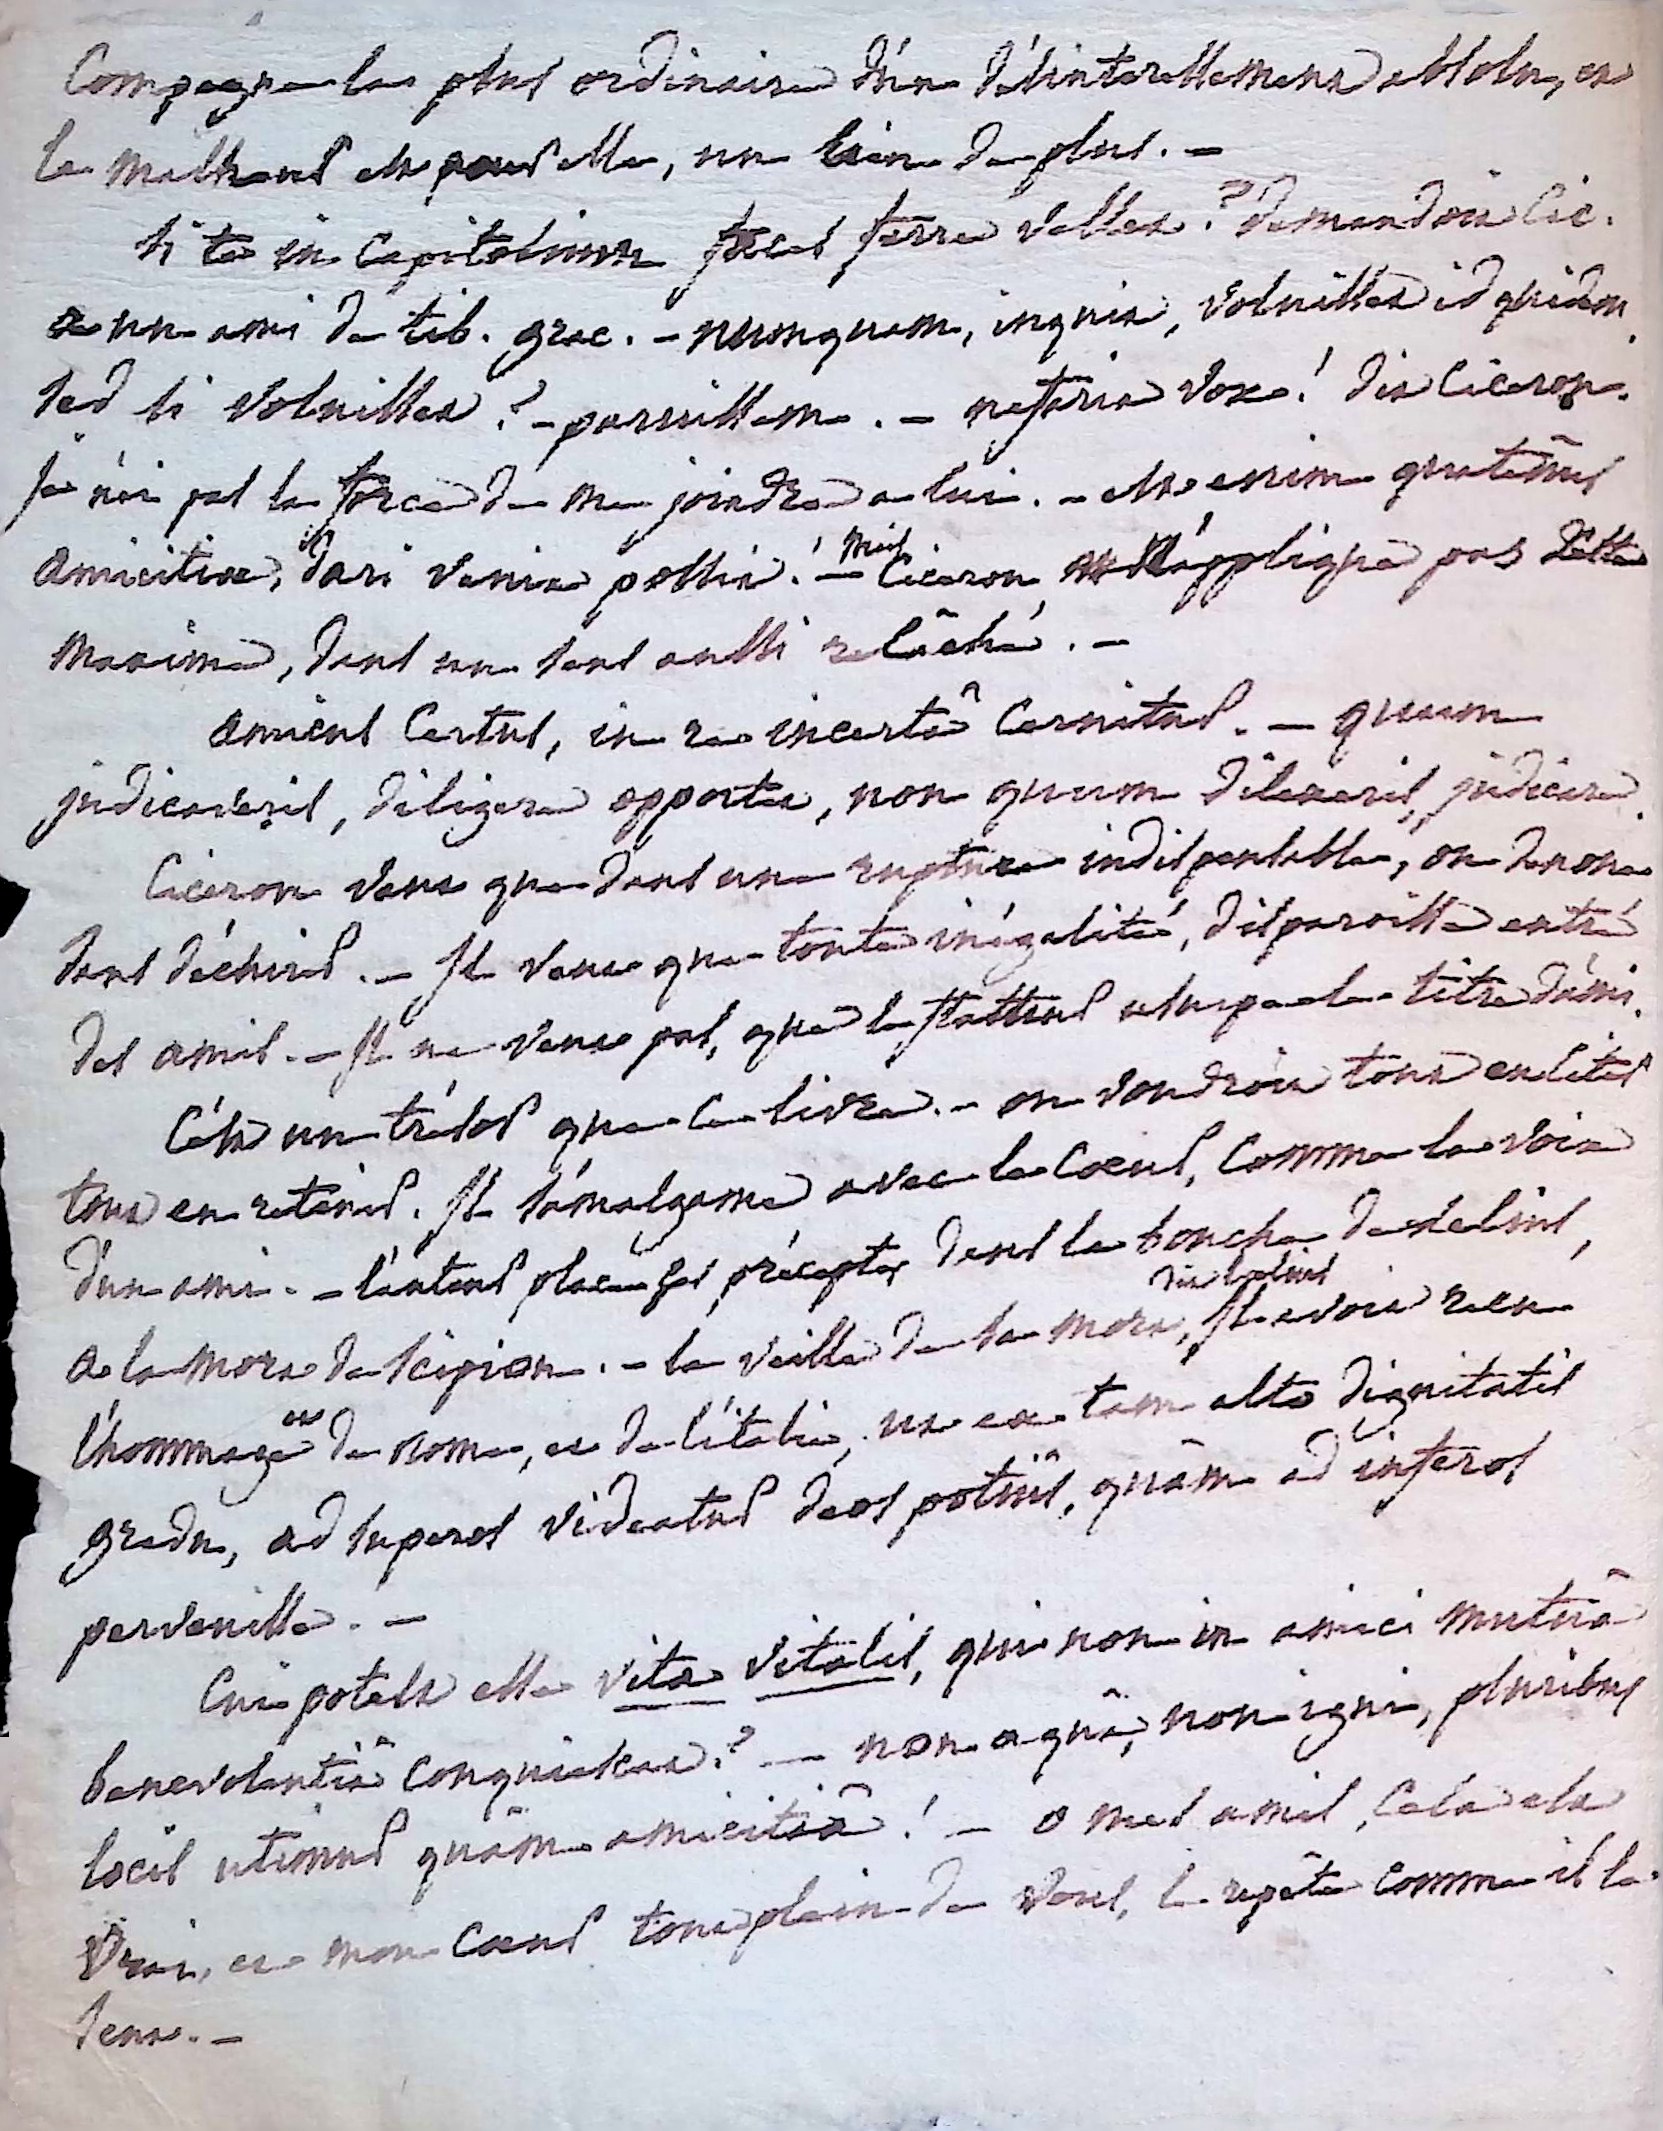 Compagne la plus ordinaire d'un désinteressement absolu, et
le malheur est pour elle, un lien de plus. -
si te in Capitolium faces ferre vellet ? demandoit Cic.
a un ami de tib. grac. - nunquam, inquit, voluisset id quidem,
sed si voluisset ? - paruissem. - nefaria vox ! dit Ciceron.
Je n'ai pas la force de me joindre a lui. - est enim quatenùs
amicitiæ, dari venia possit ! - mais Ciceron n'applique pas cette
maxime, dans un sens aussi relâché. -
amicus Certus, in re incertâ Cernitur. - quum
judicaveris, diligere opportet, non quum dilexeris, judicare.
Ciceron veut que dans une rupture indispensable, on denoue
sans déchirer. - Il veut que toute inégalité, disparoisse entre
des amis. - Il ne veut pas, que le flatteur usurpe le titre d'ami.
C'est un trésor que ce livre. - on voudroit tout en citer
tout en retenir. Il s'amalgame avec le Cœur, Comme la voix
d'un ami. - l'auteur place ses préceptes dans la bouche de Lelius,
a la mort de Scipion. - la veille de sa mort, dit Lelius Il avoit reçu
l'hommage et de Rome, et de l'italie, ut ex tam alto dignitatis
gradu, ad superos videatur deos potiùs, quàm ad inferos
pervenisse. -
Cui potest esse vita vitalis, qui non in amici mutuâ
benevolentiâ conquiescat ? - non aquâ, non igni, pluribus
locis utimur quàm amicitiâ ! - o mes amis, Cela est
vrai, et mon Cœur tout plein de vous, le repète comme il le
sent. -